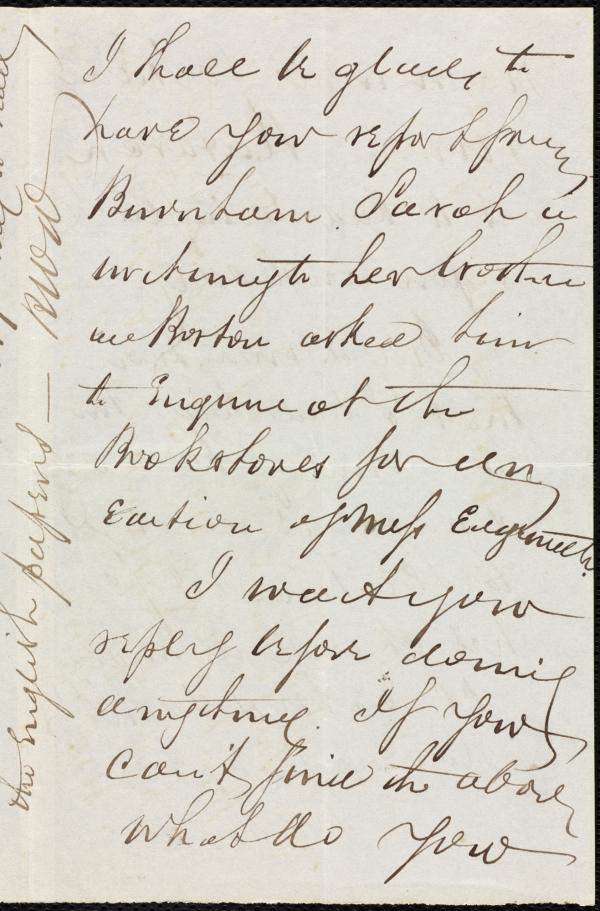 I shall be glad, to
have your report from
Burnham. Sarah in
writing to her brother
in Boston asked him
to Enquire at the
Bookstores for any
Edition of Miss Edgeworth.
I wait your
reply before doing
anything. If you
can't find the above
what do you
the English papers — RWW